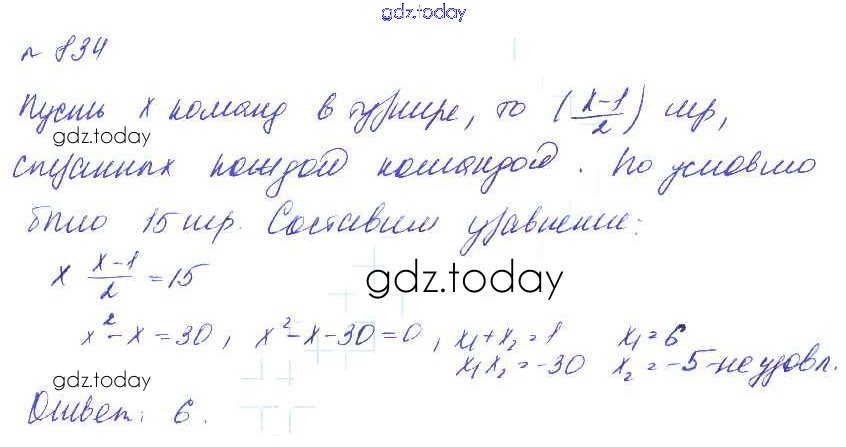 gdz.today
№ 834
Пусть x команд в турнире, то (x-1/2) игр,
gdz.today
сыгранных каждой командой. По условию
было 15 игр. Составим уравнение:
x x-1/2 = 15
gdz.today
x²-x=30, x²-x-30=0, x₁+x₂=1 x₁=6
x₁x₂=-30 x₂=-5-не удовл.
gdz.today
Ответ: 6.